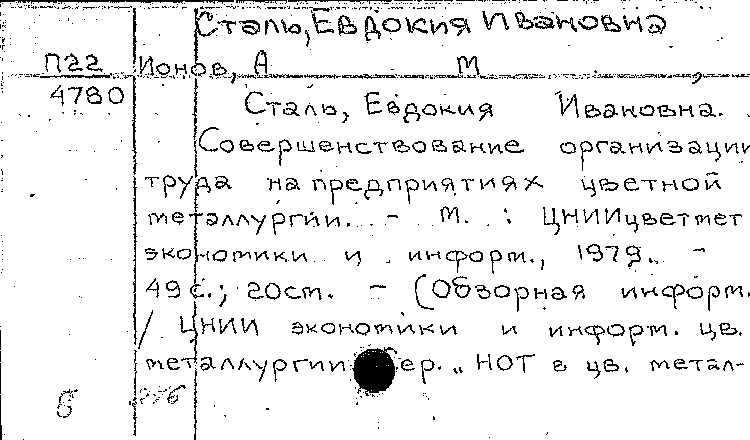 Сталь, Евдокия Ивановна
П22 Ионов, А М ,
4780 Сталь, Евдокия Ивановна.
Совершенствование организации
труда на предприятиях цветной
металлургии. - М. : ЦНИИцветмет
экономики и информ., 1979. -
49 с.; 20 см. - (Обзорная информ.
/ ЦНИИ экономики и информ. цв.
металлургии. Сер. „НОТ в цв. метал-
Б